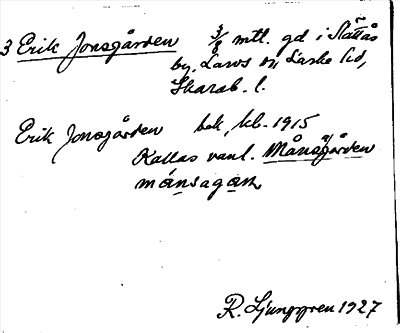 3 Erik Jonsgården 3/8 mtl. gd i Slättås
by, Larvs sn, Laske hd,
Skarab. l.
Erik Jonsgården bek, kl. 1915
Kallas vanl. Månsgården
månsagaṇ
R. Ljunggren 1927